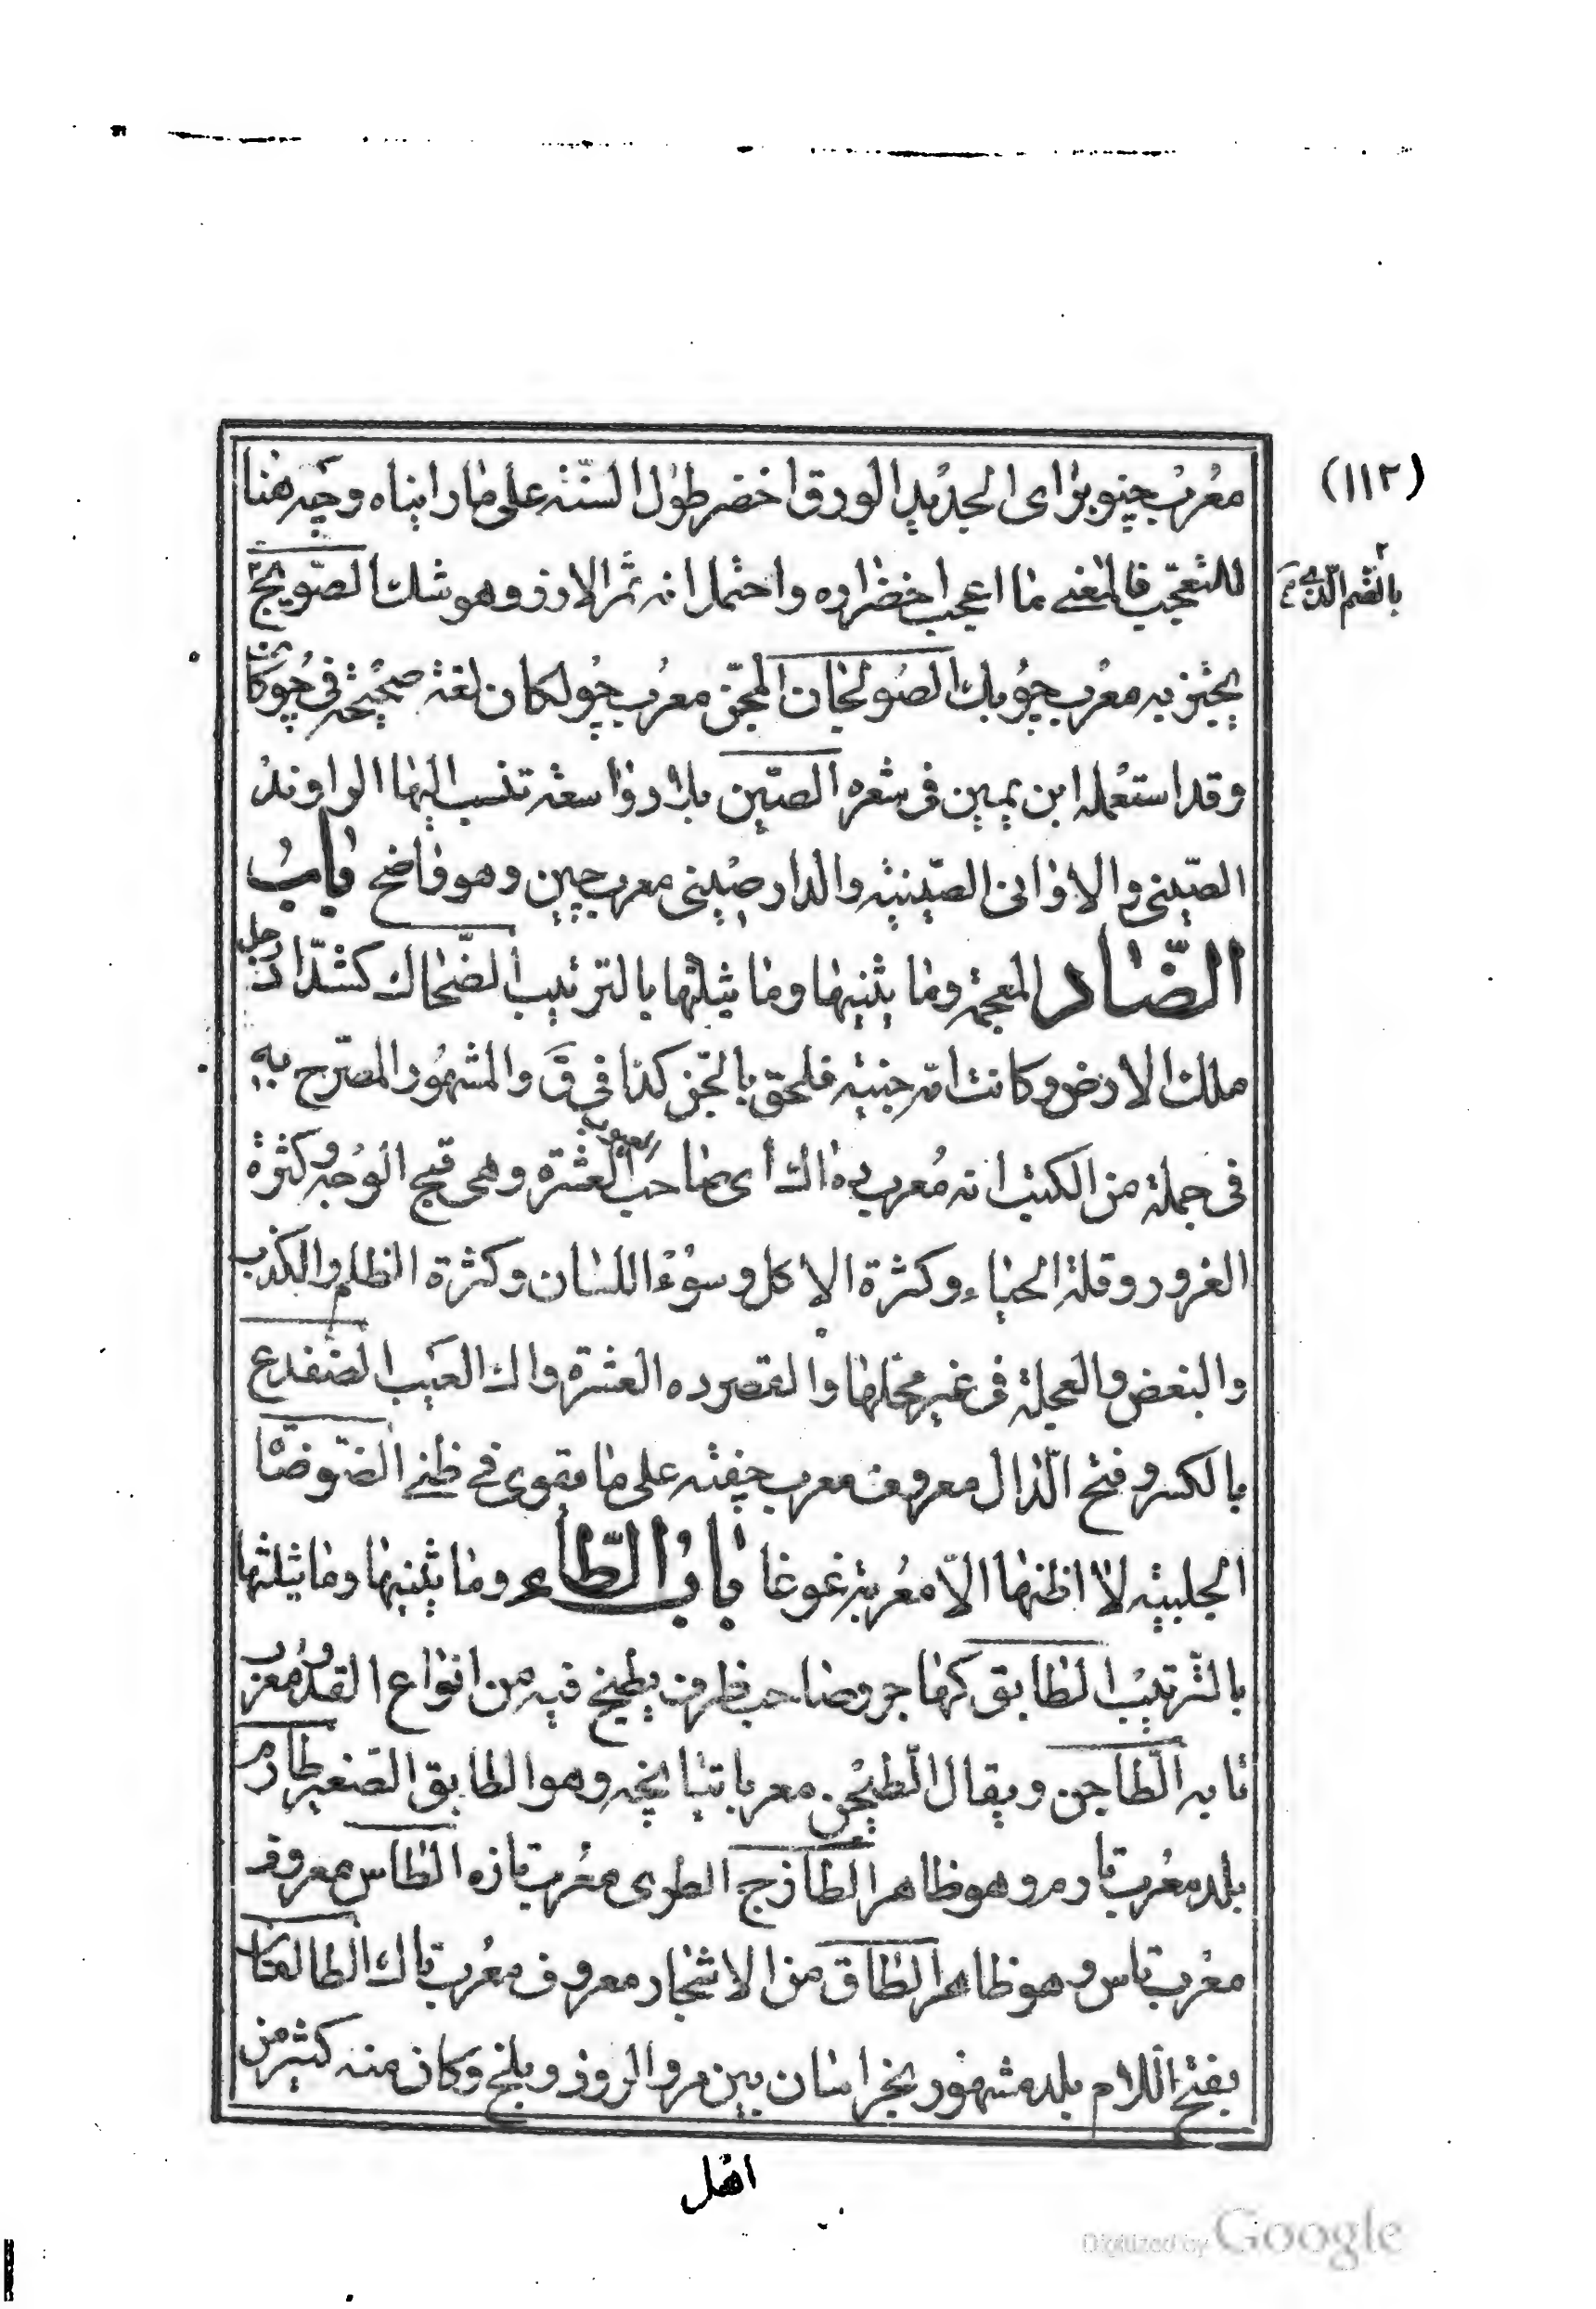 (١١٢)
معرب چنو بزای الجدید الورق اخضر طول السنة علی ما رایناه وچه هنا
للتعجب فالمعنی ما اعجب اخضراره واحتمل انه ثمر الارز وهو شك الصوبج
بالضم الذی
یخبز به معرب چوبك الصولجان المحجن معرب چولکان لغة صحیحة فی چوکان
وقد استعمله ابن یمین فی شعره الصین بلاد واسعة تنسب الیها الراوند
الصینی والاوانی الصینیة والدارصینی معرب چین وهو واضح باب
الضاد المعجمة وما یثنیها وما یثلثها بالترتیب الضحاك کشداد رجل
ملك الارض وکانت امه جنیة فلحق بالجن کذا فی ق والمشهور المصرح به
فی جملة من الکتب انه معرب ده اك أی صاحب العیوب العشرة وهی قبح الوجه وکثرة
الغرور وقلة الحیاء وکثرة الاکل وسوء اللسان وکثرة الظلم والکذب
والبغض والعجلة فی غیر محلها والقصر وده العشرة واك العیب الضفدع
بالکسر وفتح الدال معروف معرب چفته علی ما یقوی فی ظنی الضوضا
الجلبیة لا اظنها الا معربة غوغا باب الطاء وما یثنیها وما یثلثها
بالترتیب الطابق کهاجر وصاحب ظرف یطبخ فیه من انواع القدور معرب
تابه الطاجن ویقال الطیجن معربا تیانچه وهو الطابق الصغیر طارم
بلد معرب تارم وهو ظاهر الطازج الطری معرب تازه الطاس معروف
معرب تاس وهو ظاهر الطاق من الاشجار معروف معرب تاك الطالقان
بفتح اللام بلد مشهور بخراسان بین مرو الروذ وبلخ وکان منه کثیر من
اهل
Digitized by Google